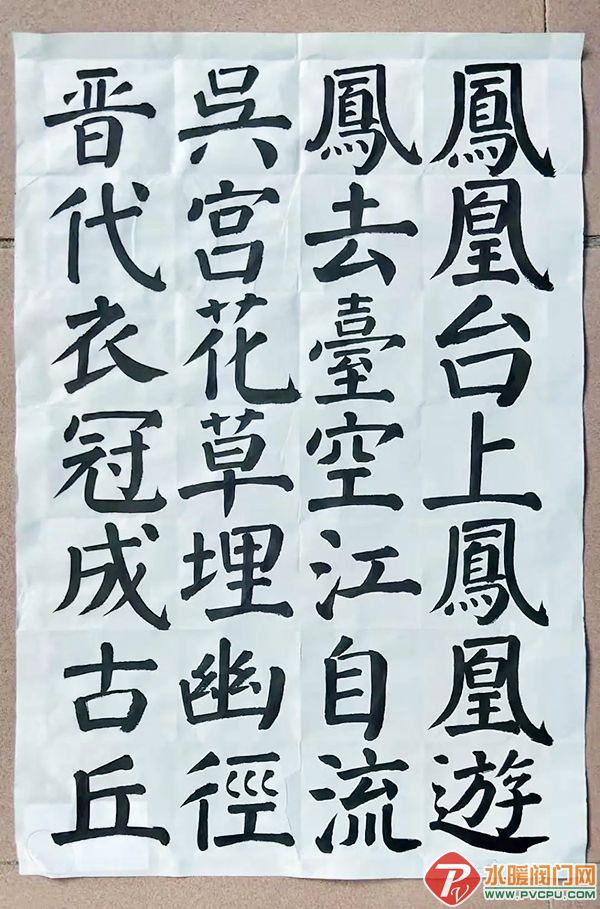 鳳凰台上鳳凰遊
鳳去臺空江自流
吳宮花草埋幽徑
晋代衣冠成古丘
水暖阀门网
WWW.PVCPU.COM